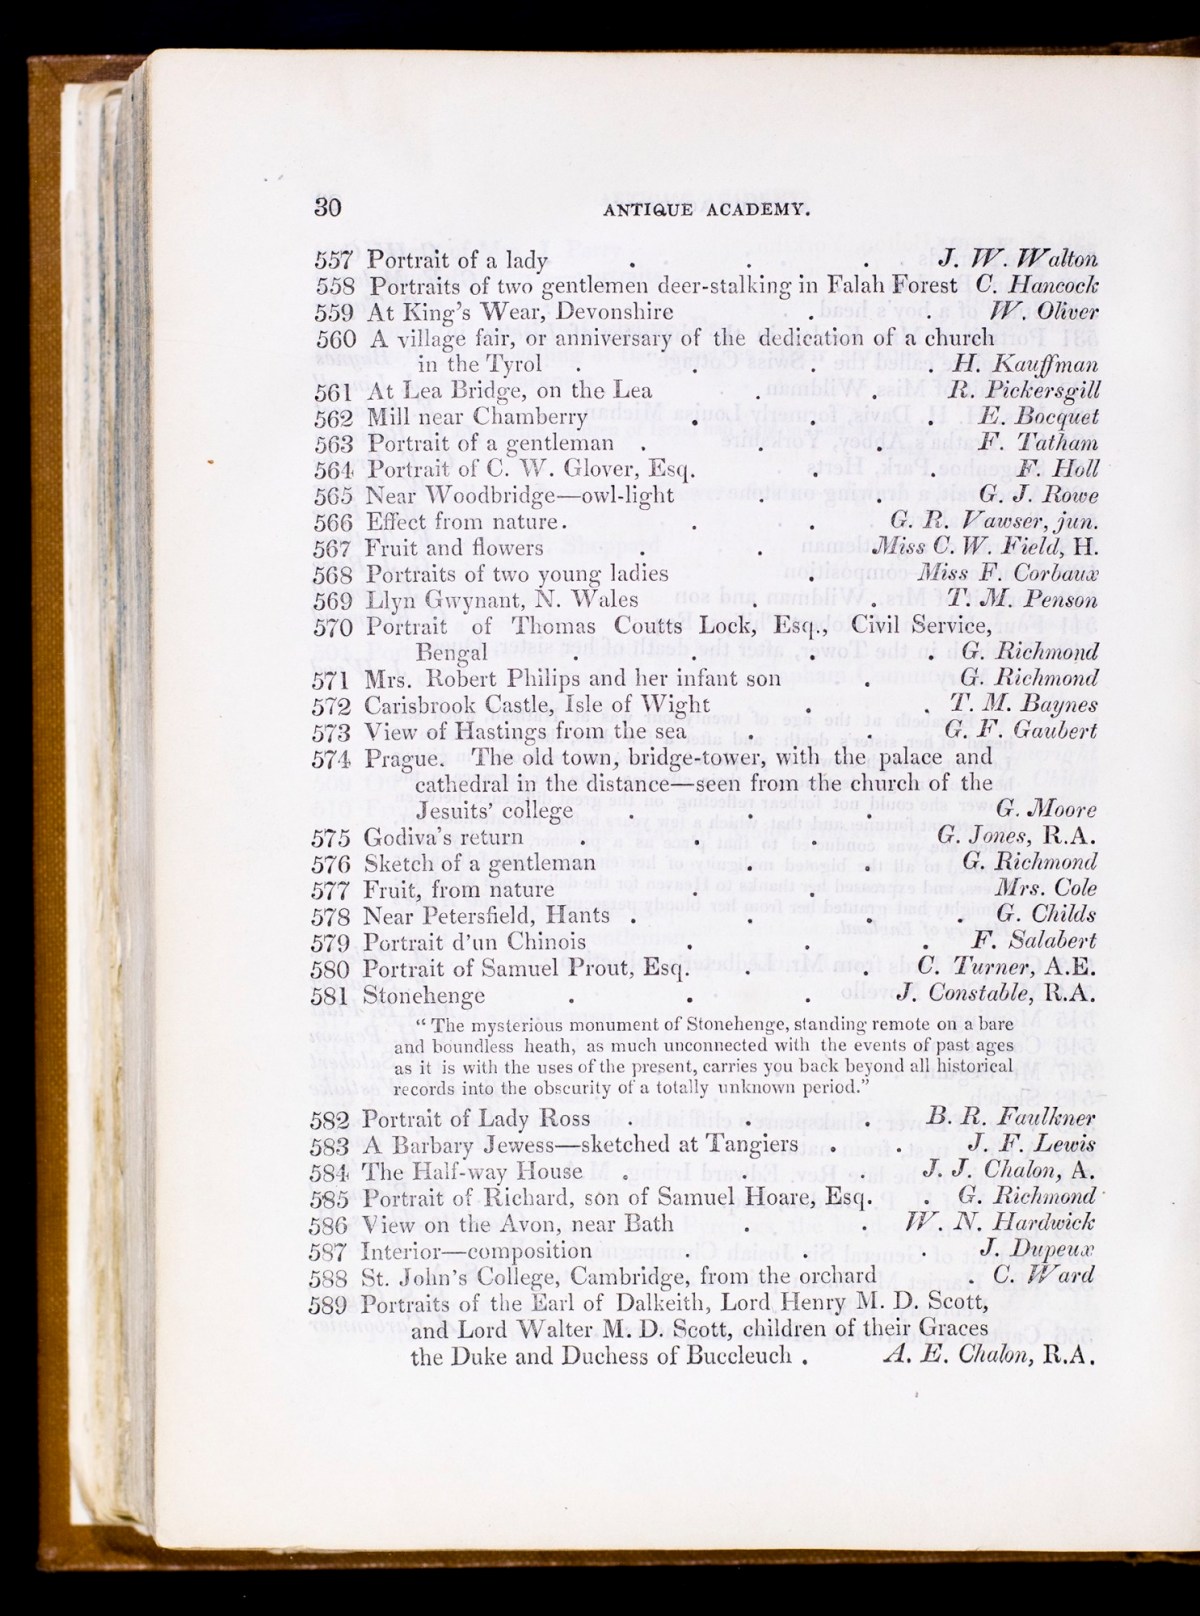 30 ANTIQUE ACADEMY.
557 Portrait of a lady . . . J. W. Walton
558 Portraits of two gentlemen deer-stalking in Falah Forest C. Hancock
559 At King's Wear, Devonshire . . W. Oliver
560 A village fair, or anniversary of the dedication of a church
in the Tyrol . . . . H. Kauffman
561 At Lea Bridge, on the Lea . . R. Pickersgill
562 Mill near Chamberry . . . E. Bocquet
563 Portrait of a gentleman . . . F. Tatham
564 Portrait of C. W. Glover, Esq. . . F. Holl
565 Near Woodbridge—owl-light . . G. J. Rowe
566 Effect from nature . . . G. R. Vawser, jun.
567 Fruit and flowers . . Miss C. W. Field, H.
568 Portraits of two young ladies . Miss F. Corbaux
569 Llyn Gwynant, N. Wales . . T. M. Penson
570 Portrait of Thomas Coutts Lock, Esq., Civil Service,
Bengal . . . . G. Richmond
571 Mrs. Robert Philips and her infant son . G. Richmond
572 Carisbrook Castle, Isle of Wight . . T. M. Baynes
573 View of Hastings from the sea . . G. F. Gaubert
574 Prague. The old town, bridge-tower, with the palace and
cathedral in the distance—seen from the church of the
Jesuits' college . . . G. Moore
575 Godiva's return . . . G. Jones, R.A.
576 Sketch of a gentleman . . G. Richmond
577 Fruit, from nature . . . Mrs. Cole
578 Near Petersfield, Hants . . . . G. Childs
579 Portrait d'un Chinois . . . F. Salabert
580 Portrait of Samuel Prout, Esq. . . C. Turner, A.E.
581 Stonehenge . . . J. Constable, R.A.
“ The mysterious monument of Stonehenge, standing remote on a bare
and boundless heath, as much unconnected with the events of past ages
as it is with the uses of the present, carries you back beyond all historical
records into the obscurity of a totally unknown period.”
582 Portrait of Lady Ross . . B. R. Faulkner
583 A Barbary Jewess—sketched at Tangiers . . J. F. Lewis
584 The Half-way House . . . J. J. Chalon, A.
585 Portrait of Richard, son of Samuel Hoare, Esq. . G. Richmond
586 View on the Avon, near Bath . . W. N. Hardwick
587 Interior—composition . . . J. Dupeux
588 St. John's College, Cambridge, from the orchard . C. Ward
589 Portraits of the Earl of Dalkeith, Lord Henry M. D. Scott,
and Lord Walter M. D. Scott, children of their Graces
the Duke and Duchess of Buccleuch . A. E. Chalon, R.A.